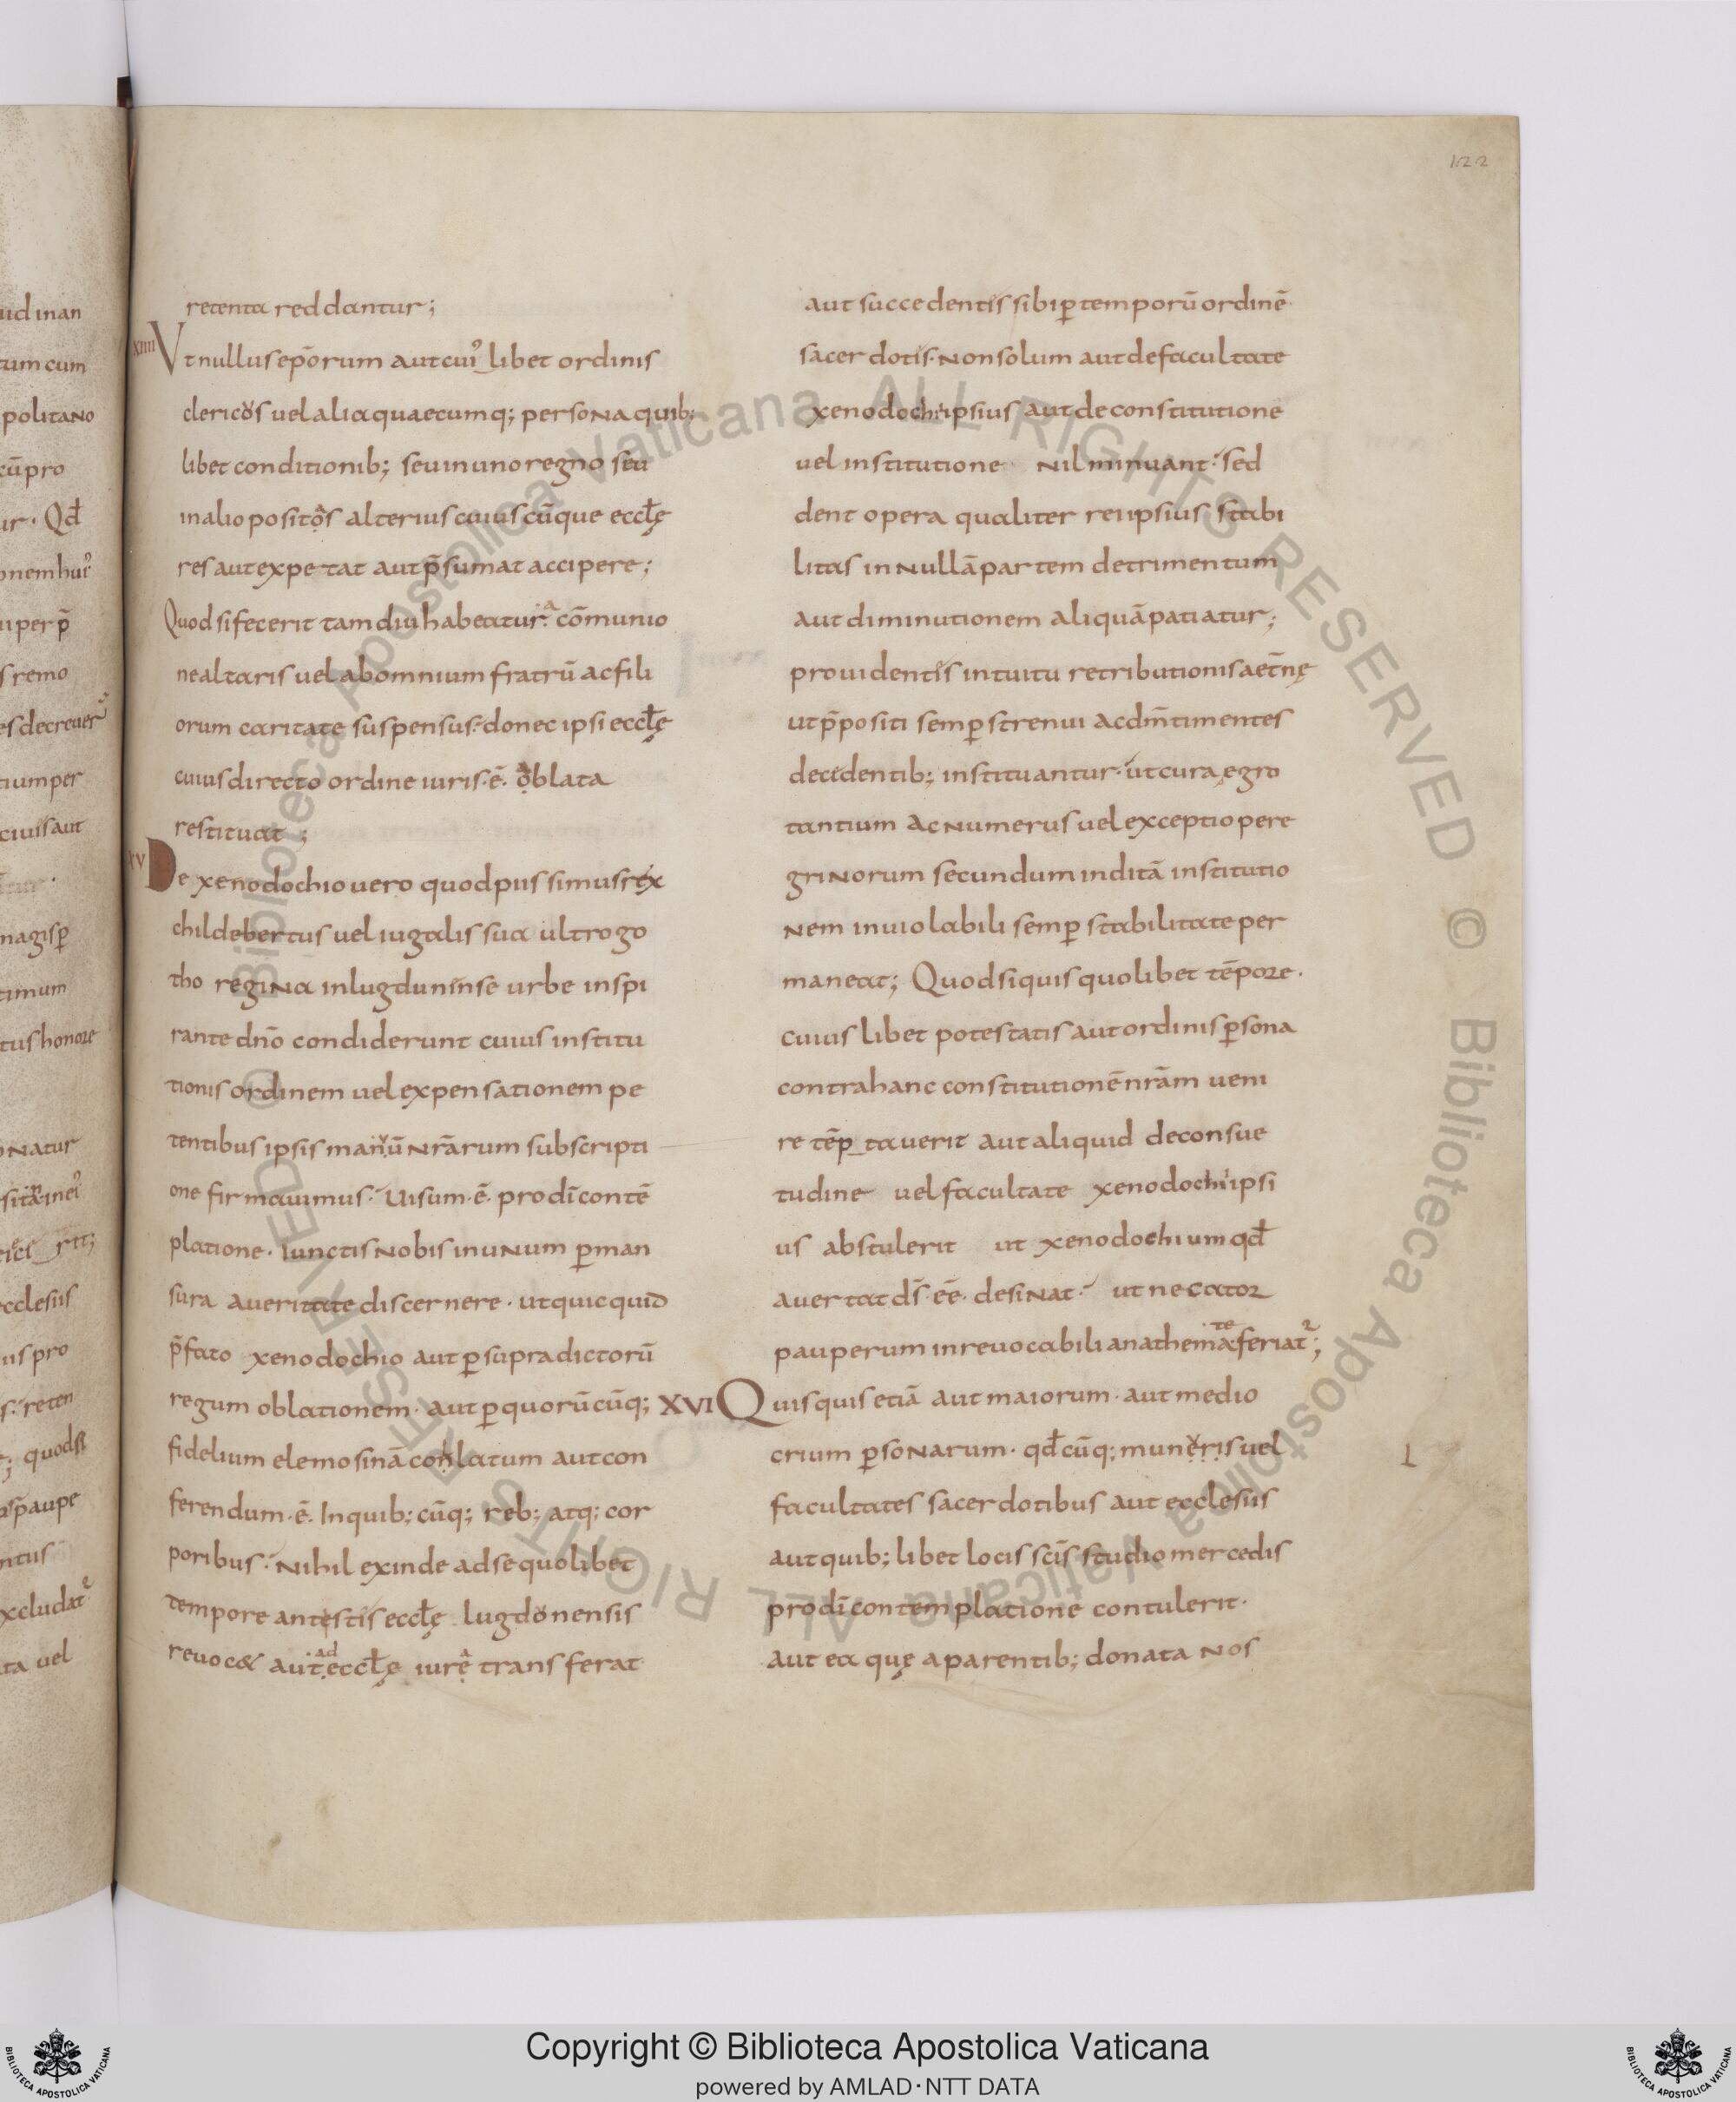 122
retenta reddantur;
XIIII Vt nullus ep̄orum aut cuiꝰlibet ordinis
clericos uel alia quaecumq; persona quib;
libet conditionib; seu in uno regno seu
in alio positos alterius cuiuscūque eccłę
res aut expetat aut p̄sumat accipere;
Quod si fecerit tam diu habeatur. a cōmunio
ne altaris uel ab omnium fratrū ac fili
orum caritate suspensus. donec ipsi eccłę
cuius directo ordine iuris.ē. ablata
restituat;
XV De xenodochio uero quod piissimus rex
childebertus uel iugalis sua ultrogo
tho regina in lugduninse urbe inspi
rante dn̄o condiderunt cuius institu
tionis ordinem uel expensationem pe
tentibus ipsis manuū nr̄arum subscripti
one firmauimus. Uisum.ē. pro dī contē
platione. Iunctis nobis in unum ꝑman
sura aueritate discernere. ut quicquid
p̄fato xenodochio aut ꝑ supradictorū
regum oblationem. aut ꝑ quorūcūq;
fidelium elemosinā conlatum aut con
ferendum.ē. In quib;cūq; reb; atq; cor
poribus. Nihil exinde ad se quolibet
tempore antestis eccłę lugdonensis
reuoc& aut ad eccłę iure transferat
aut succedentis sibi ꝑ temporū ordinē.
sacerdotis. non solum aut de facultate
xenodochii ipsius aut de constitutione
uel institutione nil minuant. sed
dent opera qualiter rei ipsius stabi
litas in nullā partem detrimentum
aut diminutionem aliquā patiatur;
prouidentis intuitu retributionis aet̄nę
ut p̄positi semꝑ strenui ac dm̄ timentes
decidentib; instituantur. ut cura ęgro
tantium ac numerus uel exceptio pere
grinorum secundum inditā institutio
nem inuiolabili semꝑ stabilitate per
maneat; Quod si quis quolibet tēpore.
cuius libet potestatis aut ordinis ꝑsona
contra hanc constitutionē nr̄am ueni
re tēptauerit aut aliquid de consue
tudine uel facultate xenodochii ipsi
us abstulerit ut xenodochium qđ
auertat ds̄.ēē. desinat. ut necator
pauperum inreuocabili anathemate feriat᷑;
XVI Quisquis etiā aut maiorum. aut medio
crium ꝑsonarum. qđcūq; muneris uel
facultates sacerdotibus aut ecclesiis
aut quib;libet locis scīs studio mercedis
pro dī contemplatione contulerit.
aut ea quę a parentib; donata nos
Copyright © Biblioteca Apostolica Vaticana
powered by AMLAD·NTT DATA